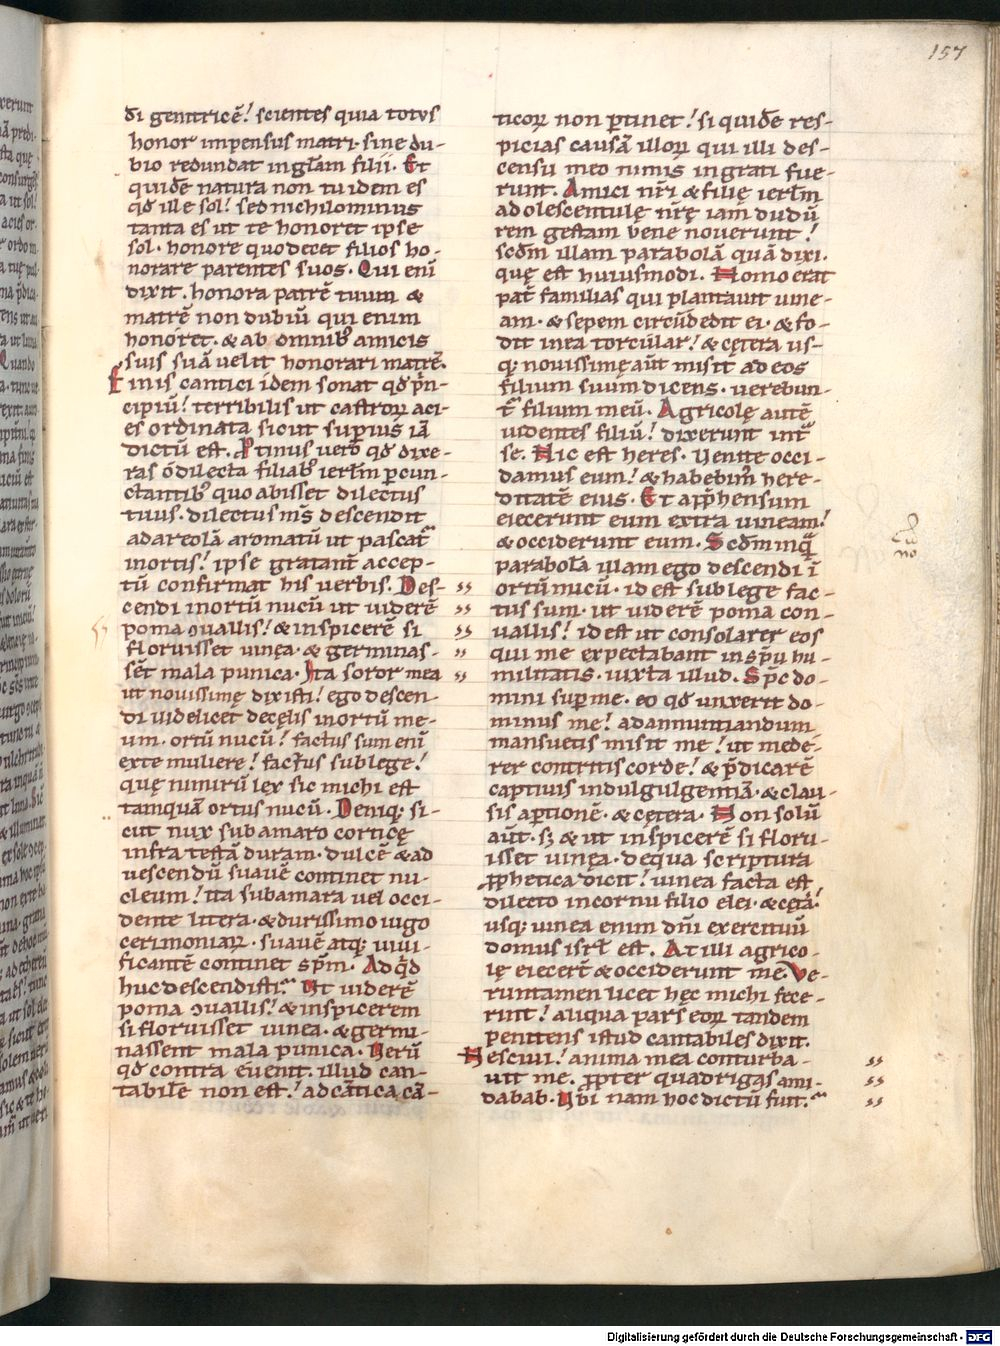 157
di genitricē! scientes quia totus
honor impensus matri· sine du-
bio redundat in głam filii· Et
quidē natura non tu idem es
qđ ille sol! sed nichilominus
tanta es ut te honoret ipse
sol· honore quo decet filios ho-
norare parentes suos· Qui eni
dixit· honora patrē tuum &
matrē non dubiū qui enim
honoret· & ab omnibꝫ amicis
suis suā velit honorari matrē·
Finis cantici idem sonat qđ p̄n-
cipiū! terribilis ut castroꝝ aci-
es ordinata sicut supius iā
dictū est· Ptinus vero qđ dixe-
ras ó dilecta filiabꝫ ierłm pcun-
ctantibꝫ quo abisset dilectus
tuus· dilectus m̄s descendit
ad areolā aromatū ut pascat
in ortis! ipse gratanť accep-
tū confirmat his verbis· Des-
cendi in ortū nucū ut viderē
poma ꝯuallis! & inspicerē si
floruisset vinea· & germinas-
sēt mala punica· Ita soror mea
ut novissime dixisti! ego descen-
di videlicet de celis in ortū me-
um· ortū nucū! factus sum eni
ex te muliere! factus sub lege!
quę nimirū lex sic michi est
tamquā ortus nucū· Deniqꝫ si-
cut nux sub amaro corticę
infra testā duram· dulcē & ad
vescendū suavē continet nu-
cleum! ita sub amara vel occi-
dente littera· & durissimo iugo
cerimoniaꝝ· suavē atqꝫ vivi-
ficantē continet spm̄· Ad qđ
huc descendisti? Ut viderē
poma ꝯuallis! & inspicerem
si floruisset vinea· & germi-
nassent mala punica· Verū
qđ contra evenit· illud can-
tabile non est! ad cātica cā-
ticoꝝ non ptinet! si quidē res-
picias causā illoꝝ qui illi des-
censu meo nimis ingrati fue-
runt· Amici nr̄i & filię ierłm
adolescentulę nr̄ę iam dudū
rem gestam bene noverunt!
scđm illam parabolā quā dixi·
quę est huiusmodi· Homo erat
pať familias qui plantavit vine-
am· & sepem circūdedit ei· & fo-
dit in ea torcular! & cętera us-
qꝫ novissime aūt misit ad eos
filium suum dicens· verebun-
t filium meū· Agricolę autē
videntes filiū! dixerunt int
se· Hic est heres· Venite occi-
damus eum! & habebimꝰ here-
ditatē eius· Et apphensum
eiecerunt eum extra vineam!
& occiderunt eum· Scđm inquā
parabolam illam ego descendi ī
ortū nucū· id est sub lege fac-
tus sum· ut viderē poma con-
vallis! id est ut consolarer eos
qui me expectabant in spu hu-
militatis· iuxta illud· Spc do-
mini sup me· eo qđ unxerit do-
minus me! ad annuntiandum
mansuetis misit me! ut mede-
rer contritis corde! & p̄dicarē
captivis indulgulgentiā· & clau-
sis aptionē· & cętera· Non solū
aūt· sꝫ & ut inspicerē si floru-
isset vinęa· de qua scriptura
pphetica dicit! vinea facta est
dilecto in cornu filio olei· & cęta!
usqꝫ vinea enim dn̄i exercituū
domus isrł est· At illi agrico-
lę eiecert̄ & occiderunt me· Ve-
runtamen licet hęc michi fece-
rint! aliqua pars eoꝝ tandem
penitens istud cantabiles dixit·
Nescivi! anima mea conturba-
vit me· ppter quadrigas ami-
dabab· Ubi nam hoc dictū fuit·
Digitalisierung gefördert durch die Deutsche Forschungsgemeinschaft - DFG